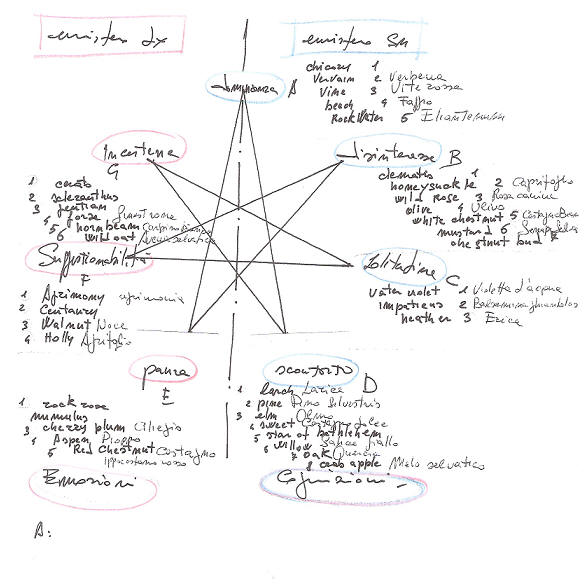 emisfero dx
emisfero sn
dominanza A
chicory 1
vervain 2 Verbena
Vine 3 Vite rossa
beech 4 Faggio
Rock Water 5
Incertezza
G
1 cerato
2 scleranthus
3 gentian
4 gorse
5 hornbeam
6 wild oat
disinteresse B
clematis 1
honeysuckle 2
wild rose 3 Rosa canina
olive 4 Ulivo
white chestnut 5
mustard 6
chestnut bud 7
Suggestionabilità
F
1 Agrimony agrimonia
2 Centaury
3 Walnut Noce
4 Holly Agrifoglio
Solitudine C
water violet 1 Violetta d'acqua
impatiens 2
heather 3 Erica
paura
E
1 rock rose
mimulus
3 cherry plum Ciliegio
4 Aspen Pioppo
5 Red Chestnut Castagno
Ippocastano rosso
sconforto D
1 larch Larice
2 pine Pino Silvestris
3 elm Olmo
4 sweet
5 star of bethlehem
6 willow Salice Giallo
7 oak Quercia
8 crab apple Melo selvatico
Emozioni
Cognizioni
A: